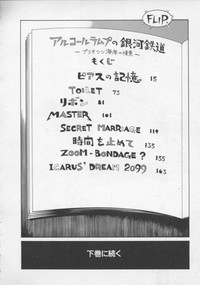 FLIP
アルコールラムプの銀河鉄道
もくじ
ピアスの記憶 15
TOILET 73
リボン 81
MASTER 101
SECRET MARRIAGE 119
時間を止めて 135
ZOOM-BONDAGE? 155
ICARUS' DREAM 2099 163
下巻に続く